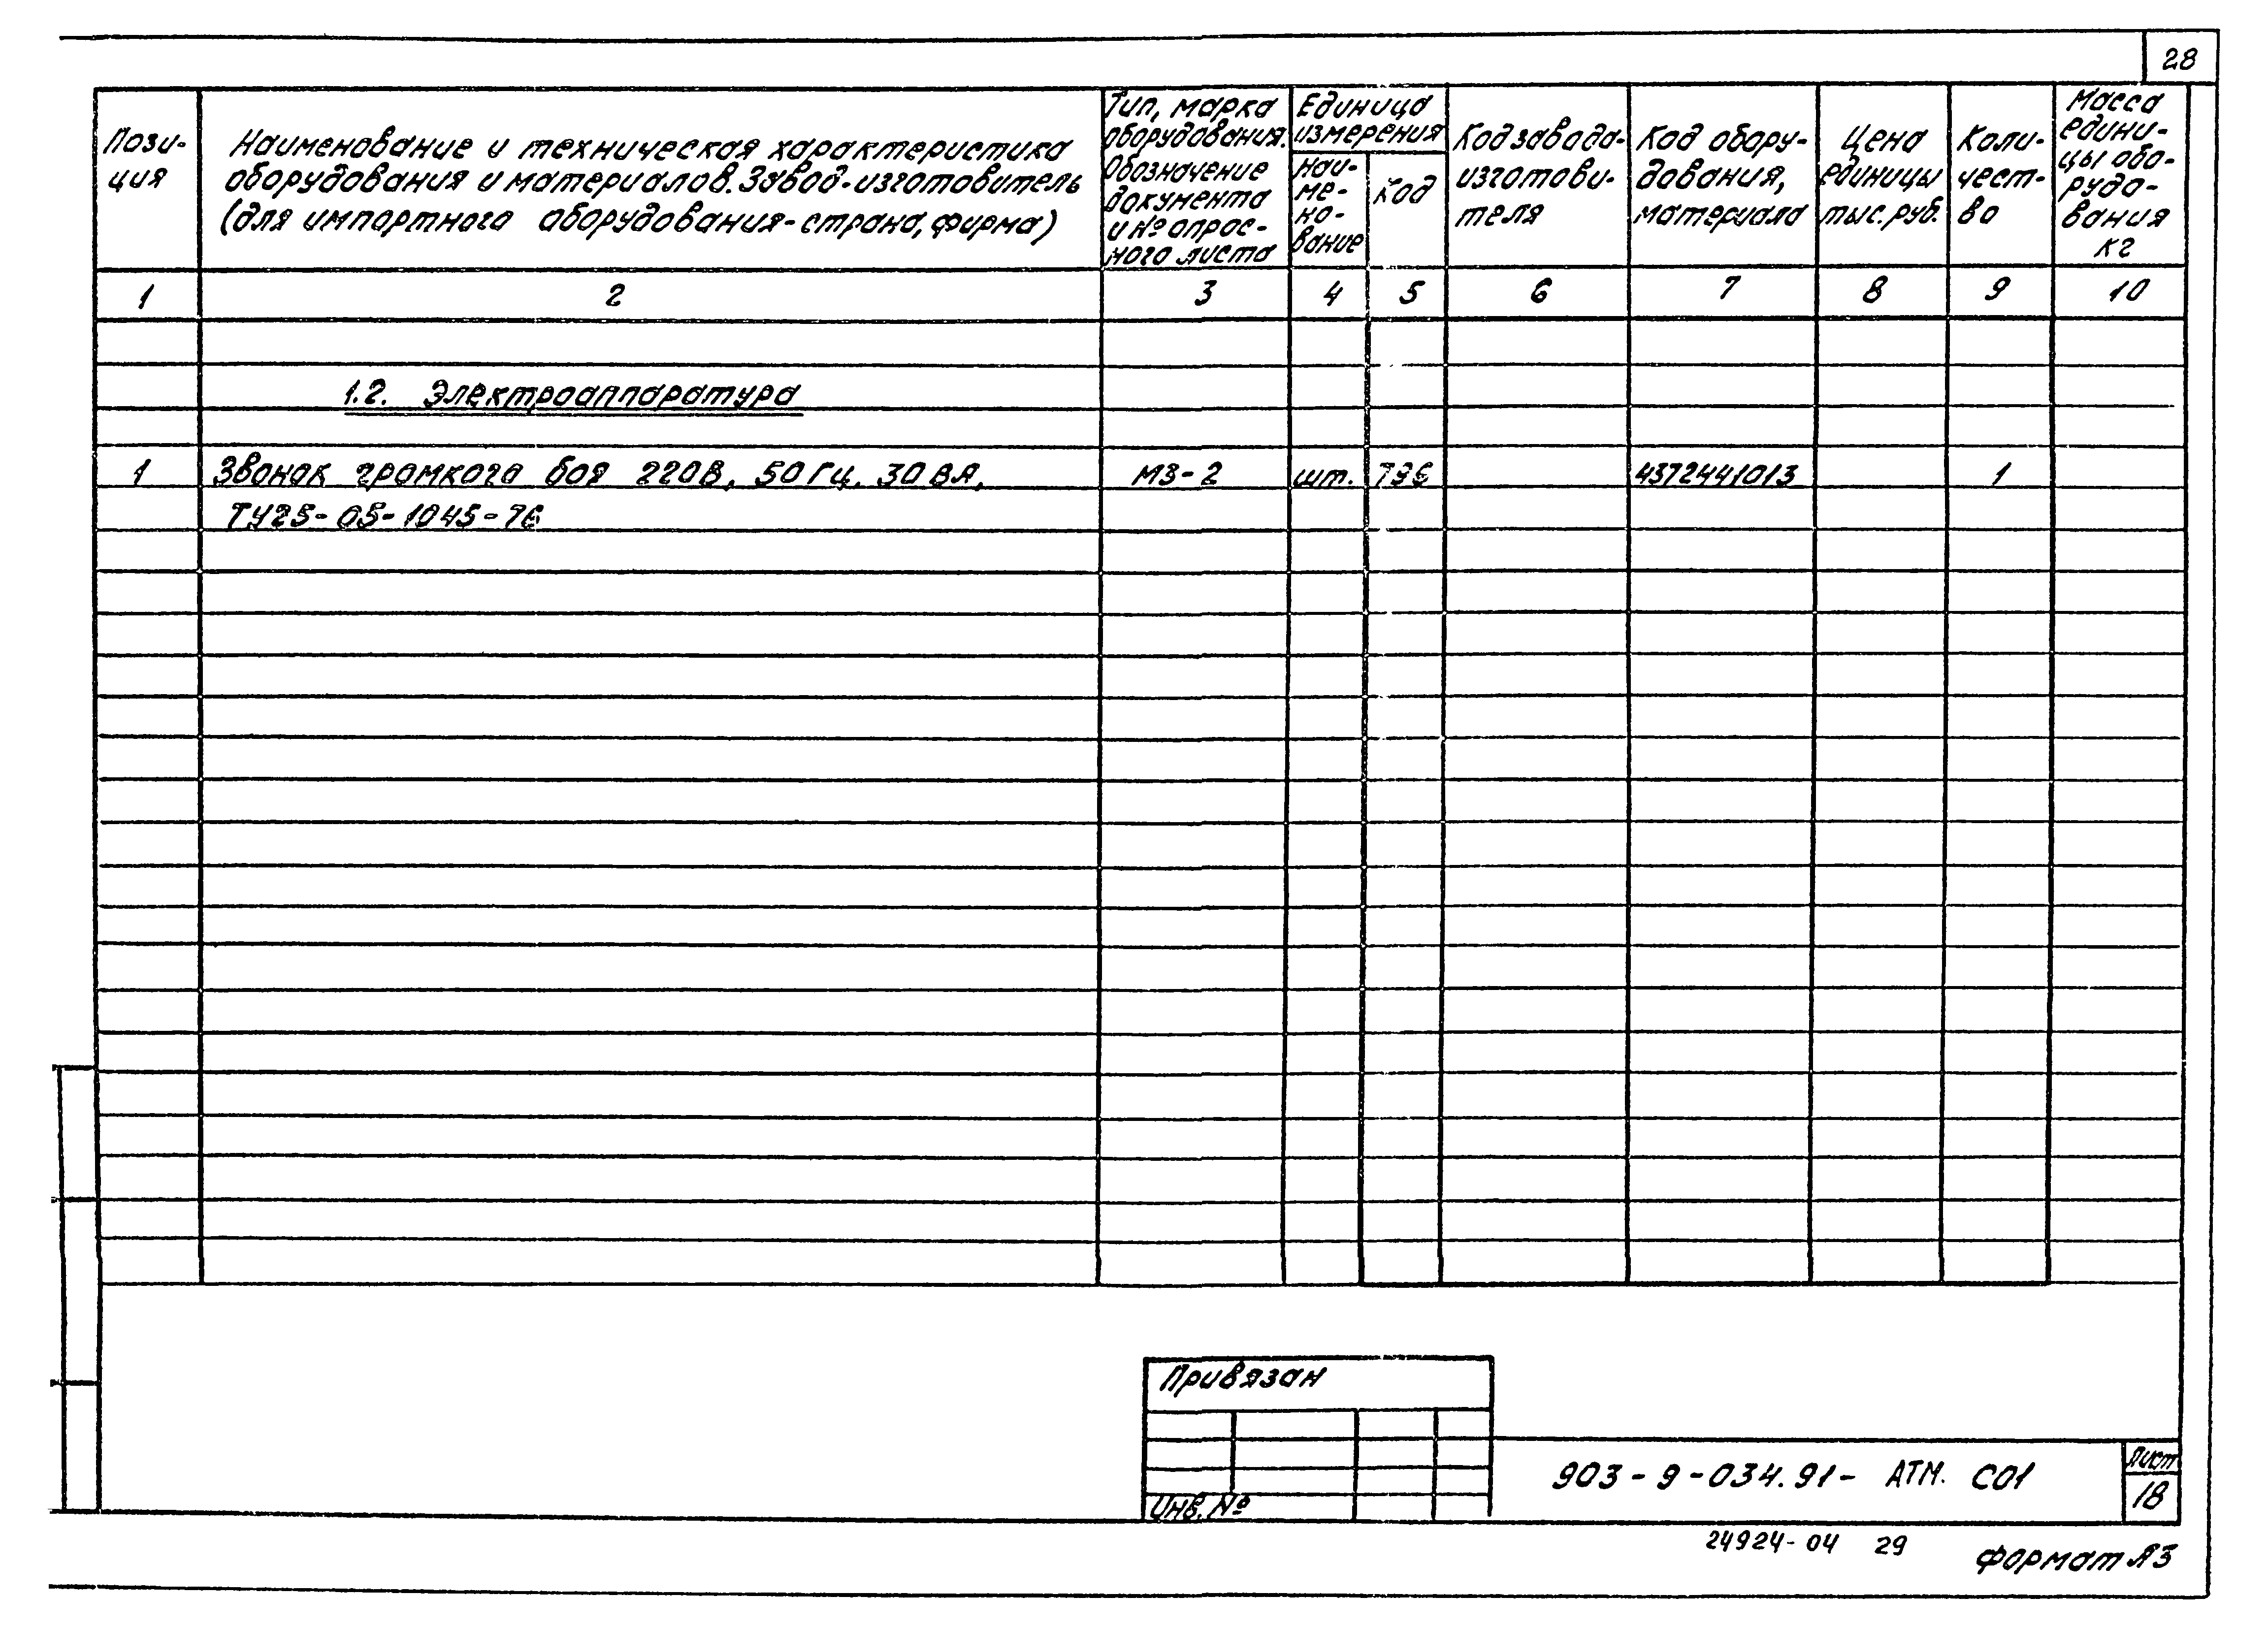 28
Пози-
ция
Наименование и техническая характеристика
оборудования и материалов. Завод-изготовитель
(для импортного оборудования-страна, фирма)
Тип, марка
оборудования.
Обозначение
документа
и № опрос-
ного листа
Единица
измерения
Наи-
ме-
но-
вание
Код
Код завода-
изготови-
теля
Код обору-
дования,
материала
Цена
единицы
тыс. руб.
Коли-
чест-
во
Масса
едини-
цы обо-
рудо-
вания
кг
1 2 3 4 5 6 7 8 9 10
1.2. Электроаппаратура
1 Звонок громкого боя 220В, 50Гц, 30ВА, МЗ-2 шт. 796 4372441013 1
ТУ25-05-1045-76
Привязан
Инв. №
903-9-034.91- АТМ. СО1
Лист
18
24924-04 29
Формат А3